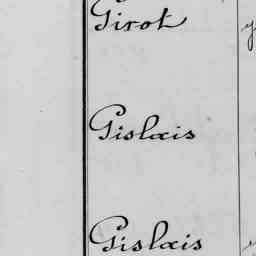 Girot
Gislais
Gislais